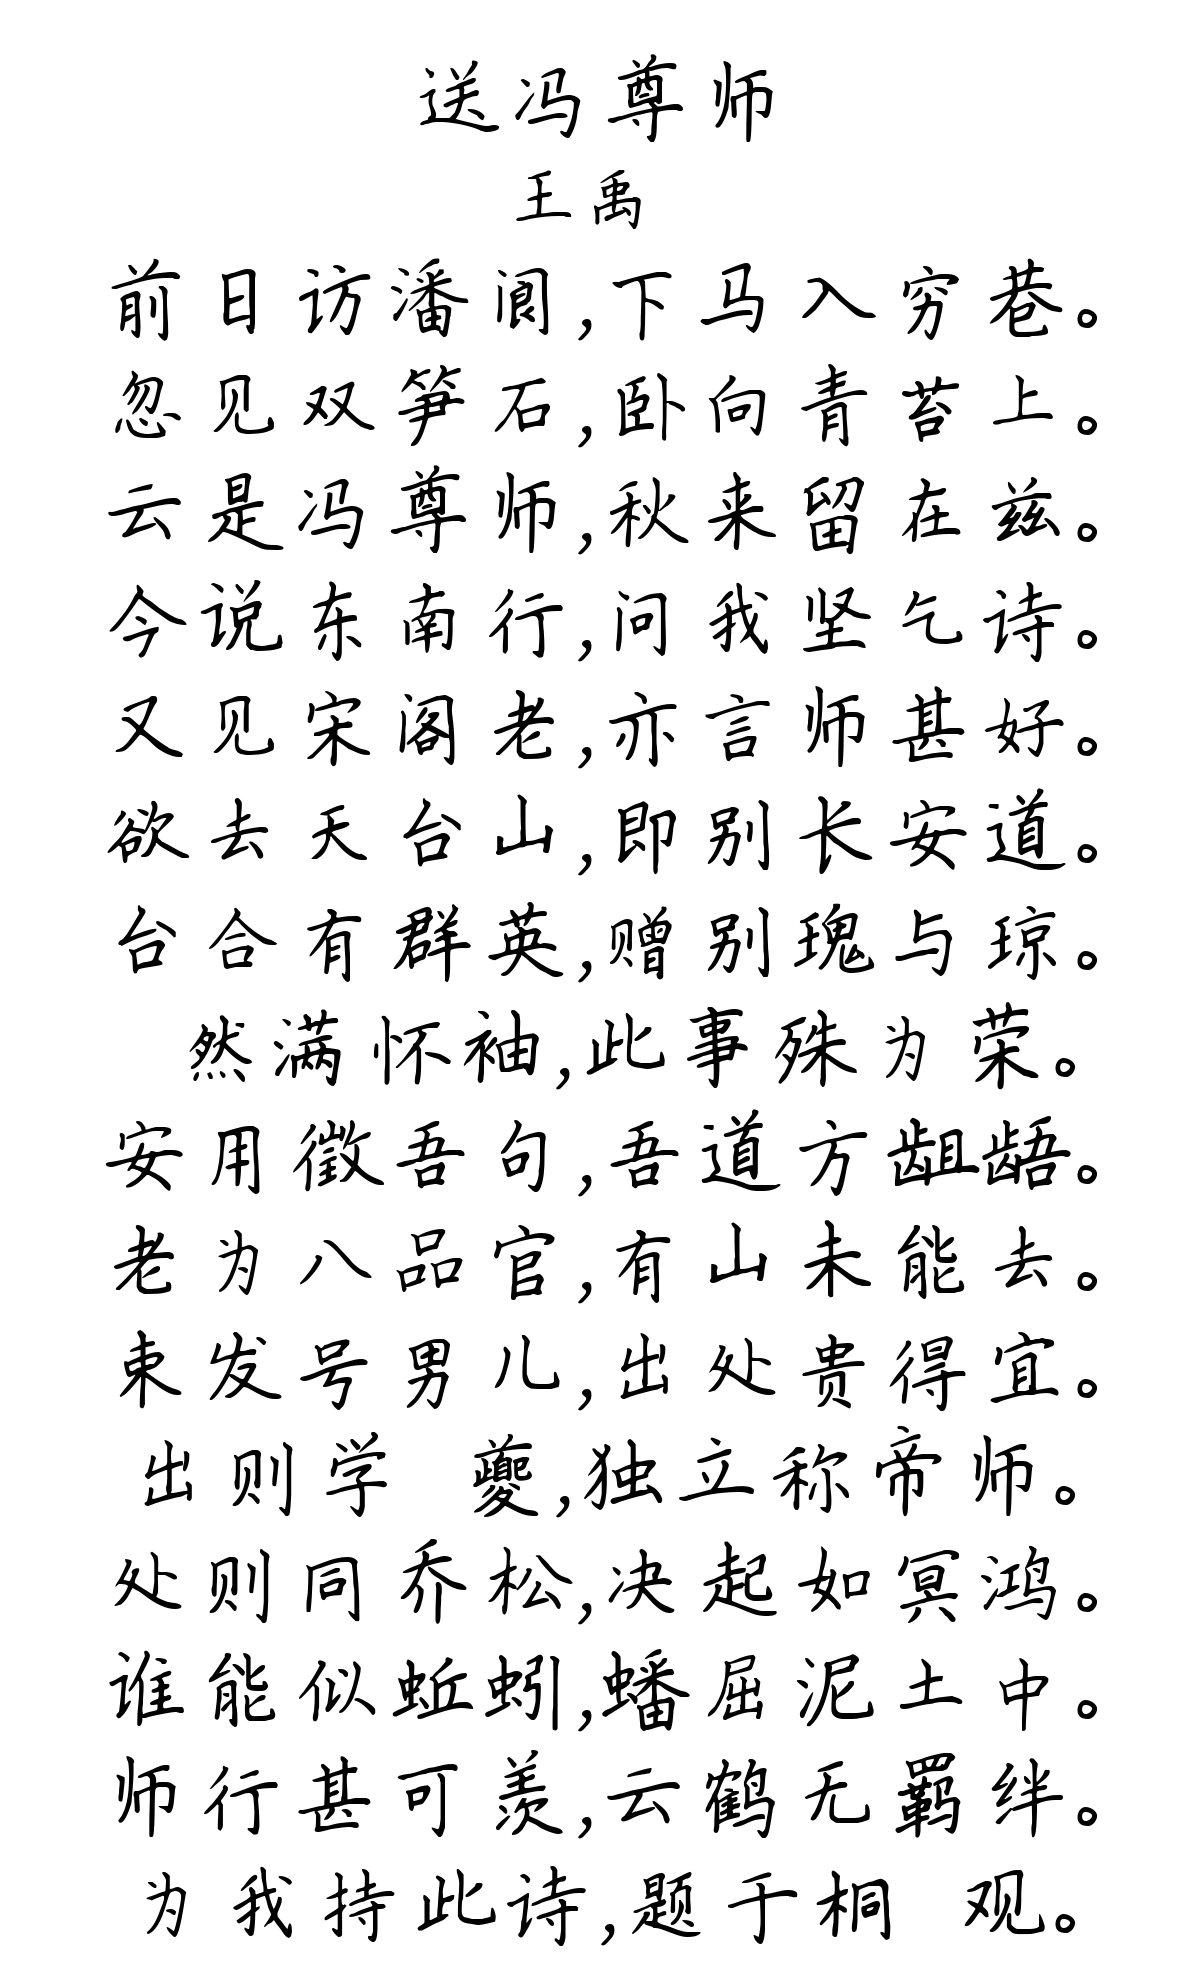 送冯尊师
王禹
前日访潘阆,下马入穷巷。
忽见双笋石,卧向青苔上。
云是冯尊师,秋来留在兹。
今说东南行,问我坚乞诗。
又见宋阁老,亦言师甚好。
欲去天台山,即别长安道。
台合有群英,赠别瑰与琼。
然满怀袖,此事殊为荣。
安用徵吾句,吾道方龃龉。
老为八品官,有山未能去。
束发号男儿,出处贵得宜。
出则学 夔,独立称帝师。
处则同乔松,决起如冥鸿。
谁能似蚯蚓,蟠屈泥土中。
师行甚可羡,云鹤无羁绊。
为我持此诗,题于桐 观。